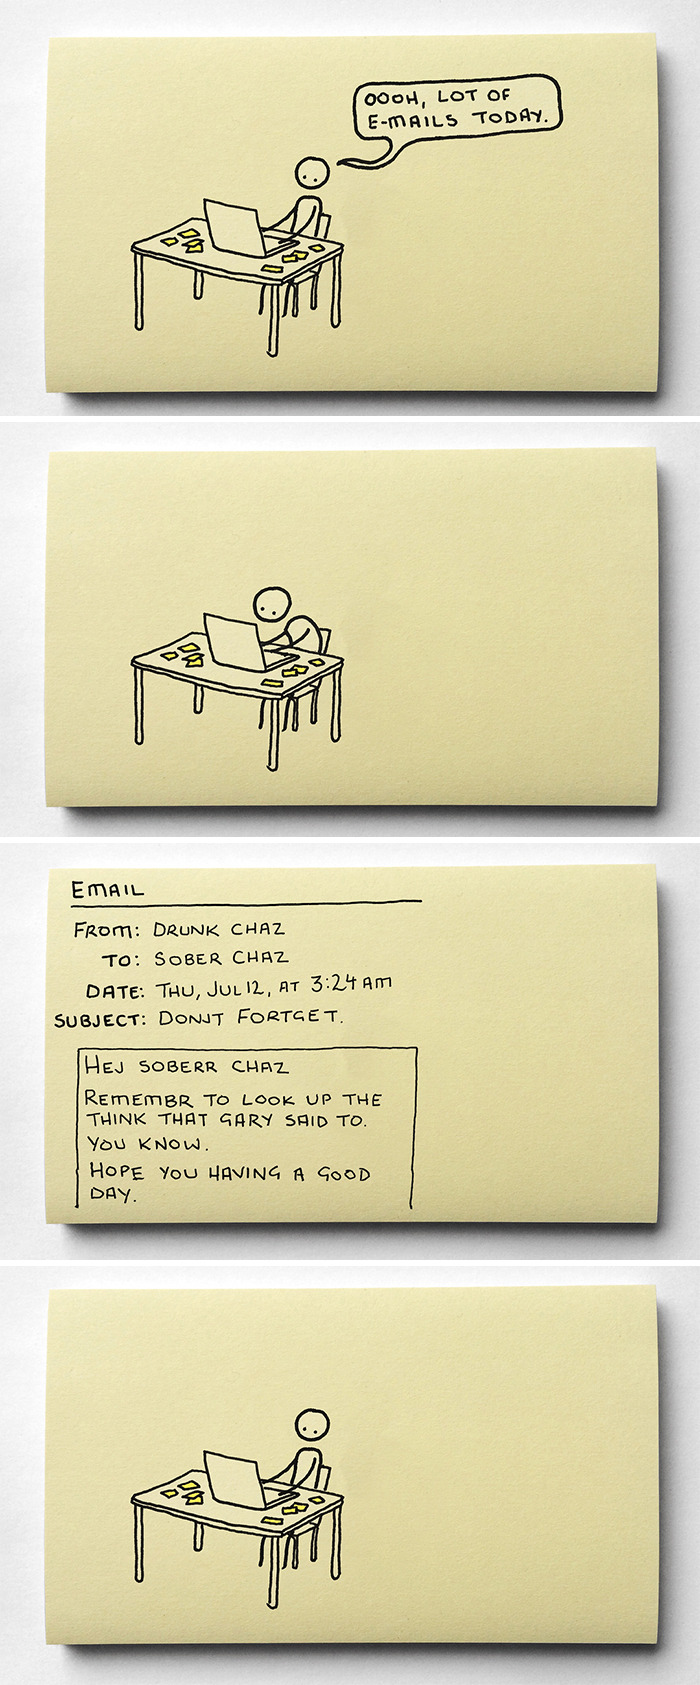 OOOH, LOT OF
E-MAILS TODAY.
EMAIL
FROM: DRUNK CHAZ
TO: SOBER CHAZ
DATE: THU, JUL 12, AT 3:24 AM
SUBJECT: DONNT FORTGET.
HEJ SOBERR CHAZ
REMEMBR TO LOOK UP THE
THINK THAT GARY SAID TO.
YOU KNOW.
HOPE YOU HAVING A GOOD
DAY.